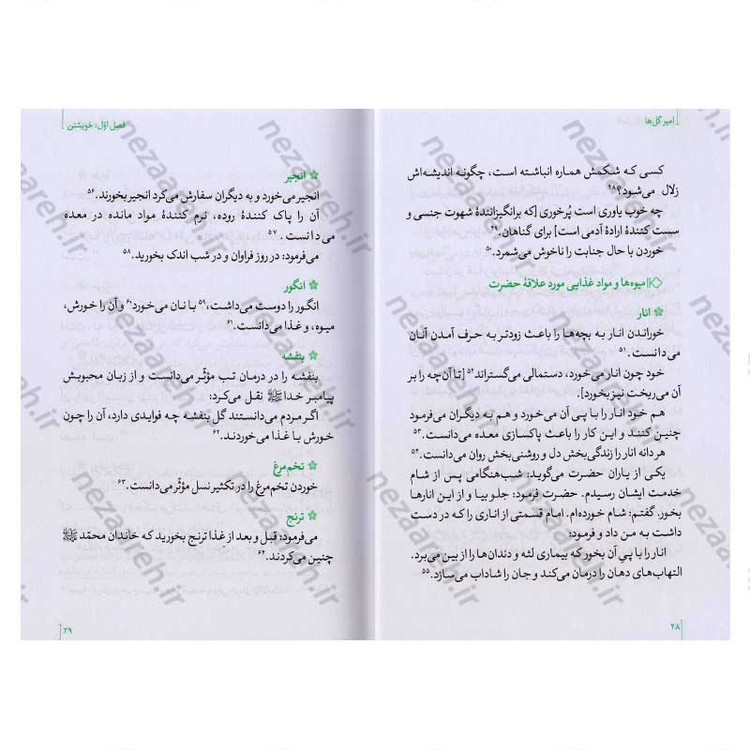 امیر گل‌ها
کسی که شکمش هماره انباشته است، چگونه اندیشه‌اش
زلال می‌شود؟۴۸
چه خوب یاوری است پُرخوری [که برانگیزانندهٔ شهوت جنسی و
سست کنندهٔ ارادهٔ آدمی است] برای گناهان.۴۹
خوردن با حال جنابت را ناخوش می‌شمرد.۵۰
میوه‌ها و مواد غذایی مورد علاقهٔ حضرت
انار
خوراندن انار به بچه‌ها را باعث زودتر به حرف آمدن آنان
می‌دانست.۵۱
خود چون انار می‌خورد، دستمالی می‌گستراند۵۲ [تا آن‌چه را بر
آن می‌ریخت نیز بخورد].
هم خود انار را با پی آن می‌خورد و هم به دیگران می‌فرمود
چنین کنند و این کار را باعث پاکسازی معده می‌دانست.۵۳
هر دانه انار را زندگی‌بخش دل و روشنی‌بخش روان می‌دانست.۵۴
یکی از یاران حضرت می‌گوید: شب‌هنگامی پس از شام
خدمت ایشان رسیدم. حضرت فرمود: جلو بیا و از این انارها
بخور. گفتم: شام خورده‌ام. امام قسمتی از اناری را که در دست
داشت به من داد و فرمود:
انار را با پیِ آن بخور که بیماری لثه و دندان‌ها را از بین می‌برد.
التهاب‌های دهان را درمان می‌کند و جان را شاداب می‌سازد.۵۵
۲۸
فصل اوّل: خویشتن
انجیر
انجیر می‌خورد و به دیگران سفارش می‌کرد انجیر بخورند.۵۶
آن را پاک کنندهٔ روده، نرم کنندهٔ مواد مانده در معده
می‌دانست.۵۷
می‌فرمود: در روز فراوان و در شب اندک بخورید.۵۸
انگور
انگور را دوست می‌داشت،۵۹ با نان می‌خورد۶۰ و آن را خورش،
میوه، و غذا می‌دانست.۶۱
بنفشه
بنفشه را در درمان تب مؤثّر می‌دانست و از زبان محبوبش
پیامبر خدا ﷺ نقل می‌کرد:
اگر مردم می‌دانستند گل بنفشه چه فوایدی دارد، آن را چون
خورش با غذا می‌خوردند.۶۲
تخم‌مرغ
خوردن تخم‌مرغ را در تکثیر نسل مؤثّر می‌دانست.۶۳
ترنج
می‌فرمود: قبل و بعد از غذا ترنج بخورید که خاندان محمّد ﷺ
چنین می‌کردند.۶۴
۲۹
nezaareh.ir